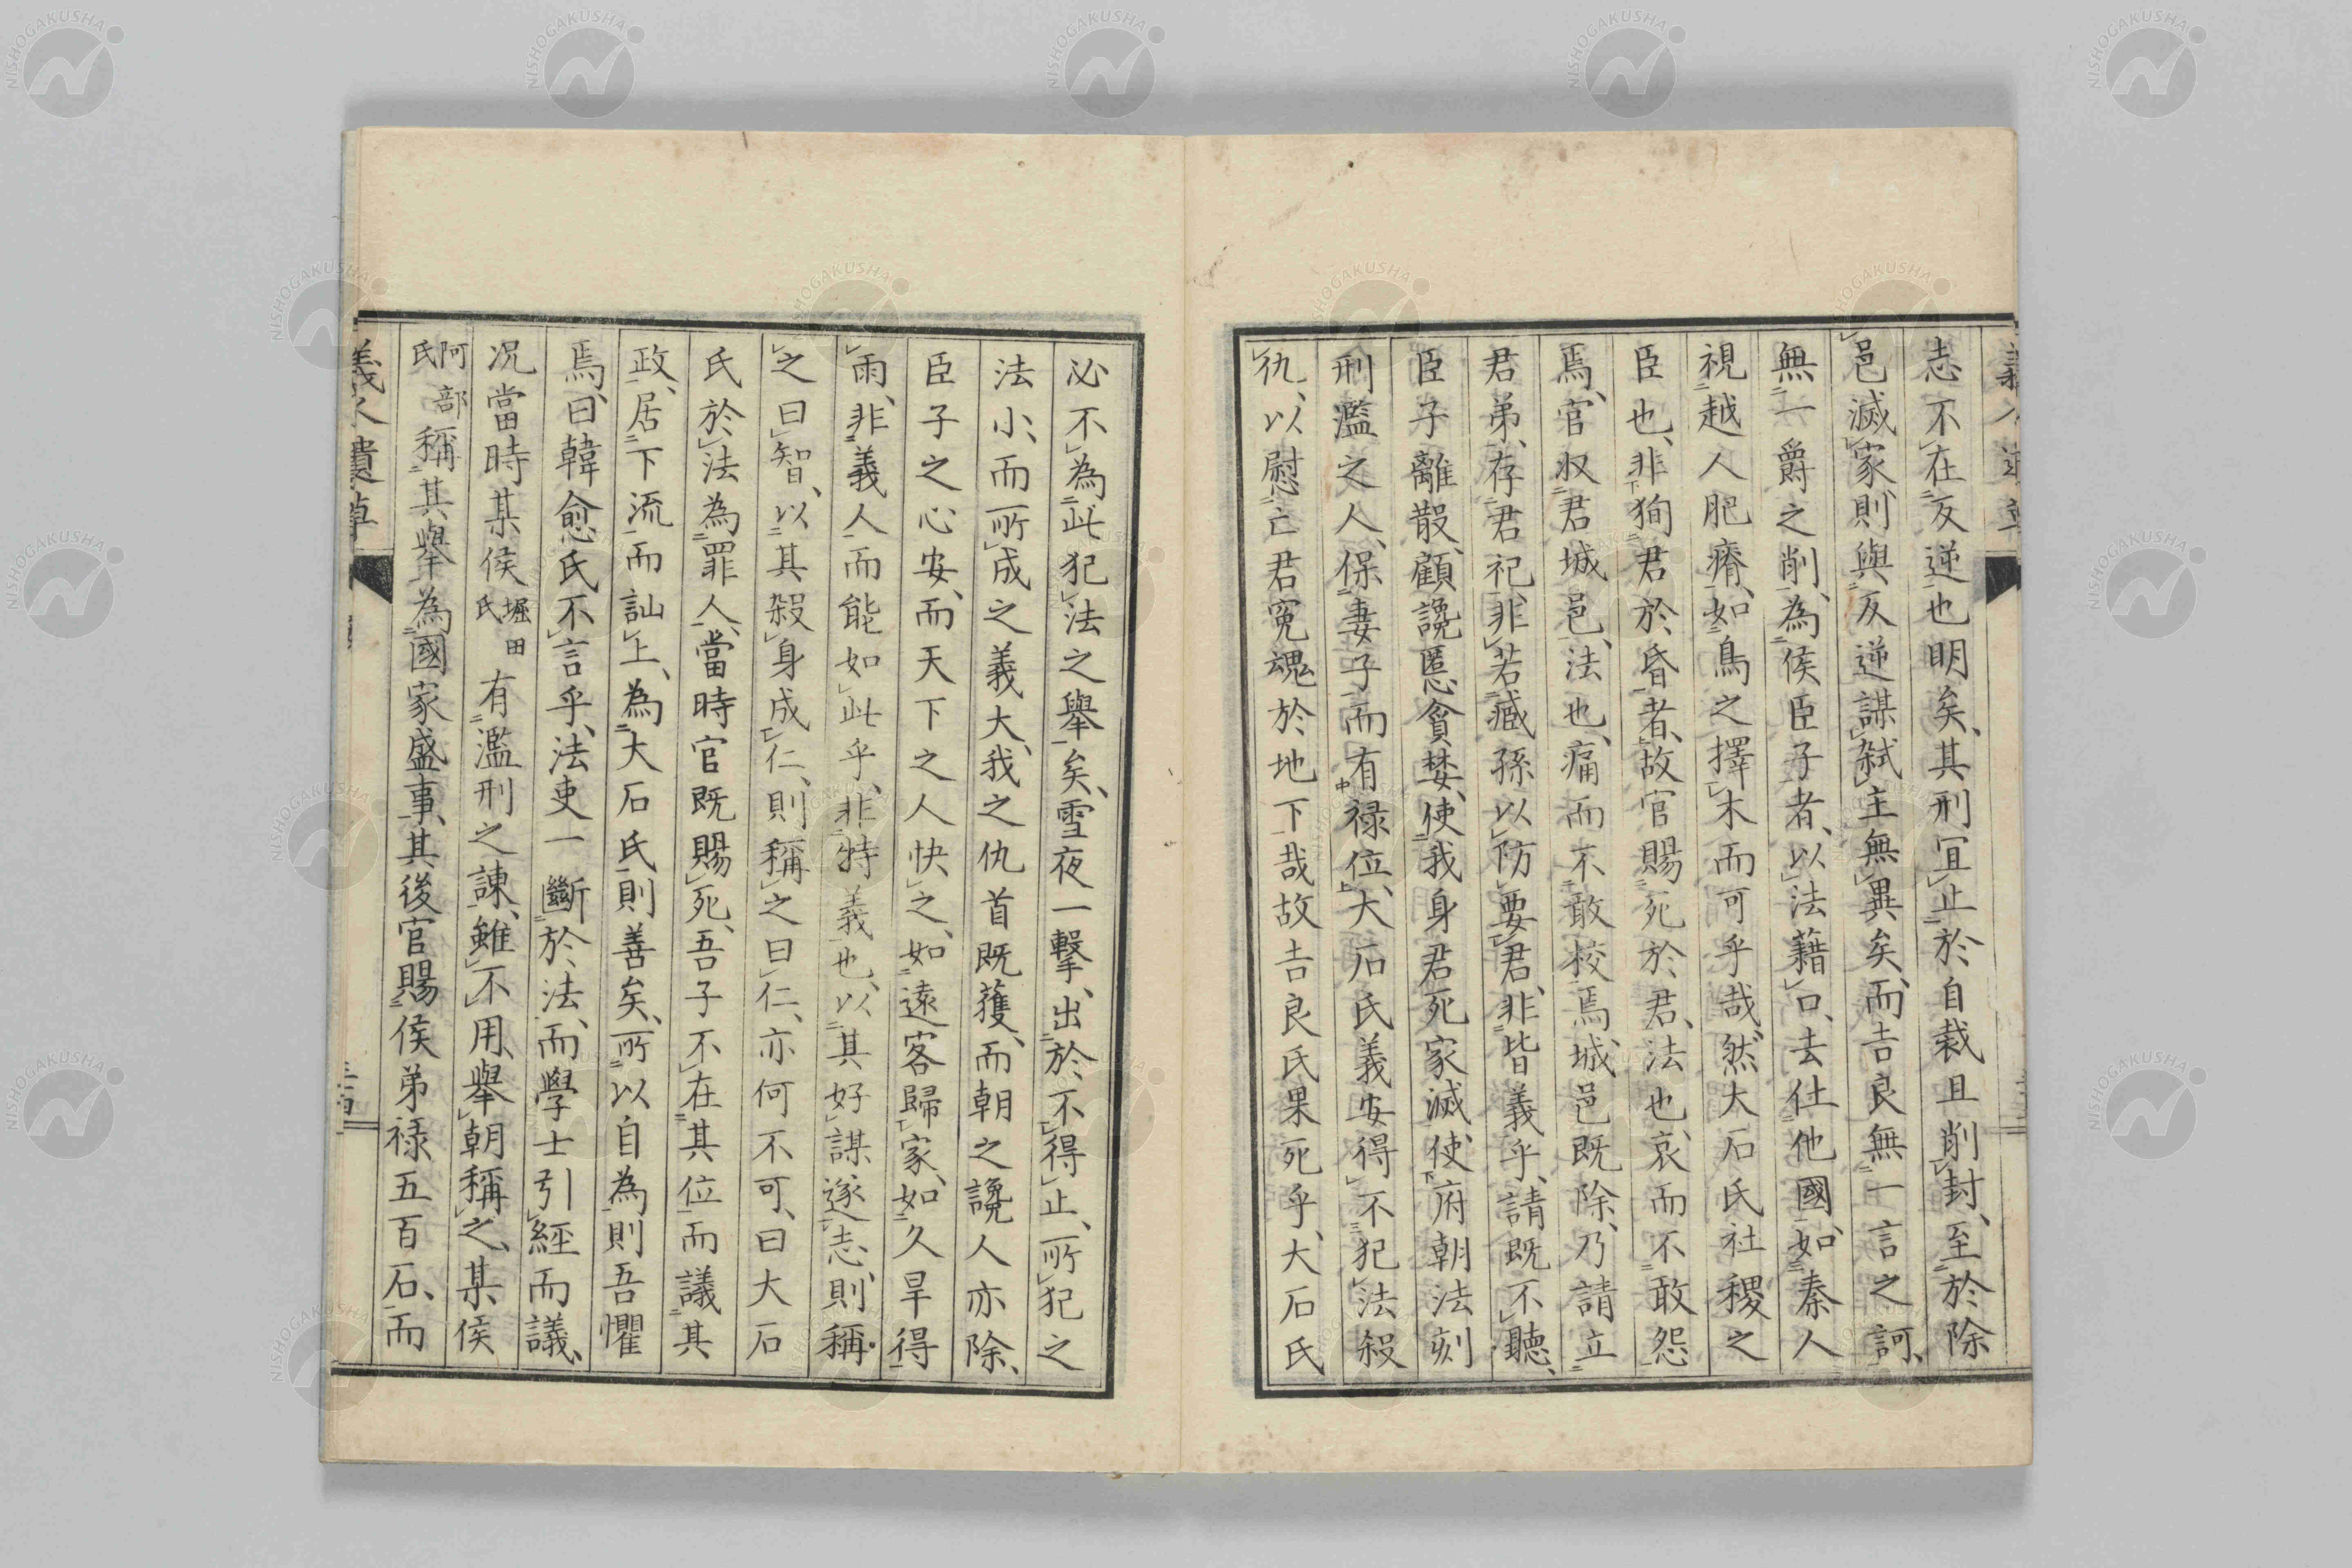 志不在反逆也明矣、其刑宜止於自裁且削封、至於除
邑滅家、則與反逆謀弑主無異矣、而吉良無一言之訶、
無一爵之削、為侯臣子者、以法藉口、去仕他國、如秦人
視越人肥瘠、如鳥之擇木而可乎哉、然大石氏社稷之
臣也、非狥君於昏者、故官賜死於君、法也、哀而不敢怨
焉、官収君城邑、法也、痛而不敢校焉、城邑既除、乃請立
君弟、存君祀、非若臧孫以防要君、非皆義乎、請既不聽、
臣子離散、顧讒慝貪婪、使我身君死家滅、使府朝法刻
刑濫之人、保妻子而有禄位、大石氏義安得不犯法殺
仇、以慰亡君冤魂於地下哉故吉良氏果死乎、大石氏
必不為此犯法之舉矣、雪夜一擊、出於不得止、所犯之
法小、而所成之義大、我之仇首既獲、而朝之讒人亦除、
臣子之心安、而天下之人快之、如遠客歸家、如久旱得
雨、非義人而能如此乎、非特義也、以其好謀遂志、則稱
之曰智、以其殺身成仁、則稱之曰仁、亦何不可、曰大石
氏於法為罪人、當時官既賜死、吾子不在其位而議其
政、居下流而訕上、為大石氏則善矣、所以自為則吾懼
焉、曰韓愈氏不言乎、法吏一斷於法、而學士引經而議、
况當時某侯堀田氏有濫刑之諫、雖不用、舉朝稱之、某侯
阿部氏稱其舉為國家盛事、其後官賜侯弟禄五百石、而
義人遺草